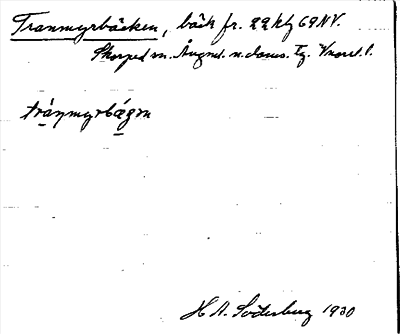 Tranmyrbäcken, bäck fr. 22 klg 69NV.
Skorped m. Ångml. n. doms. Tg. Vnorrl. l.
tránmyrbǽgm
H A. Söderberg 1930